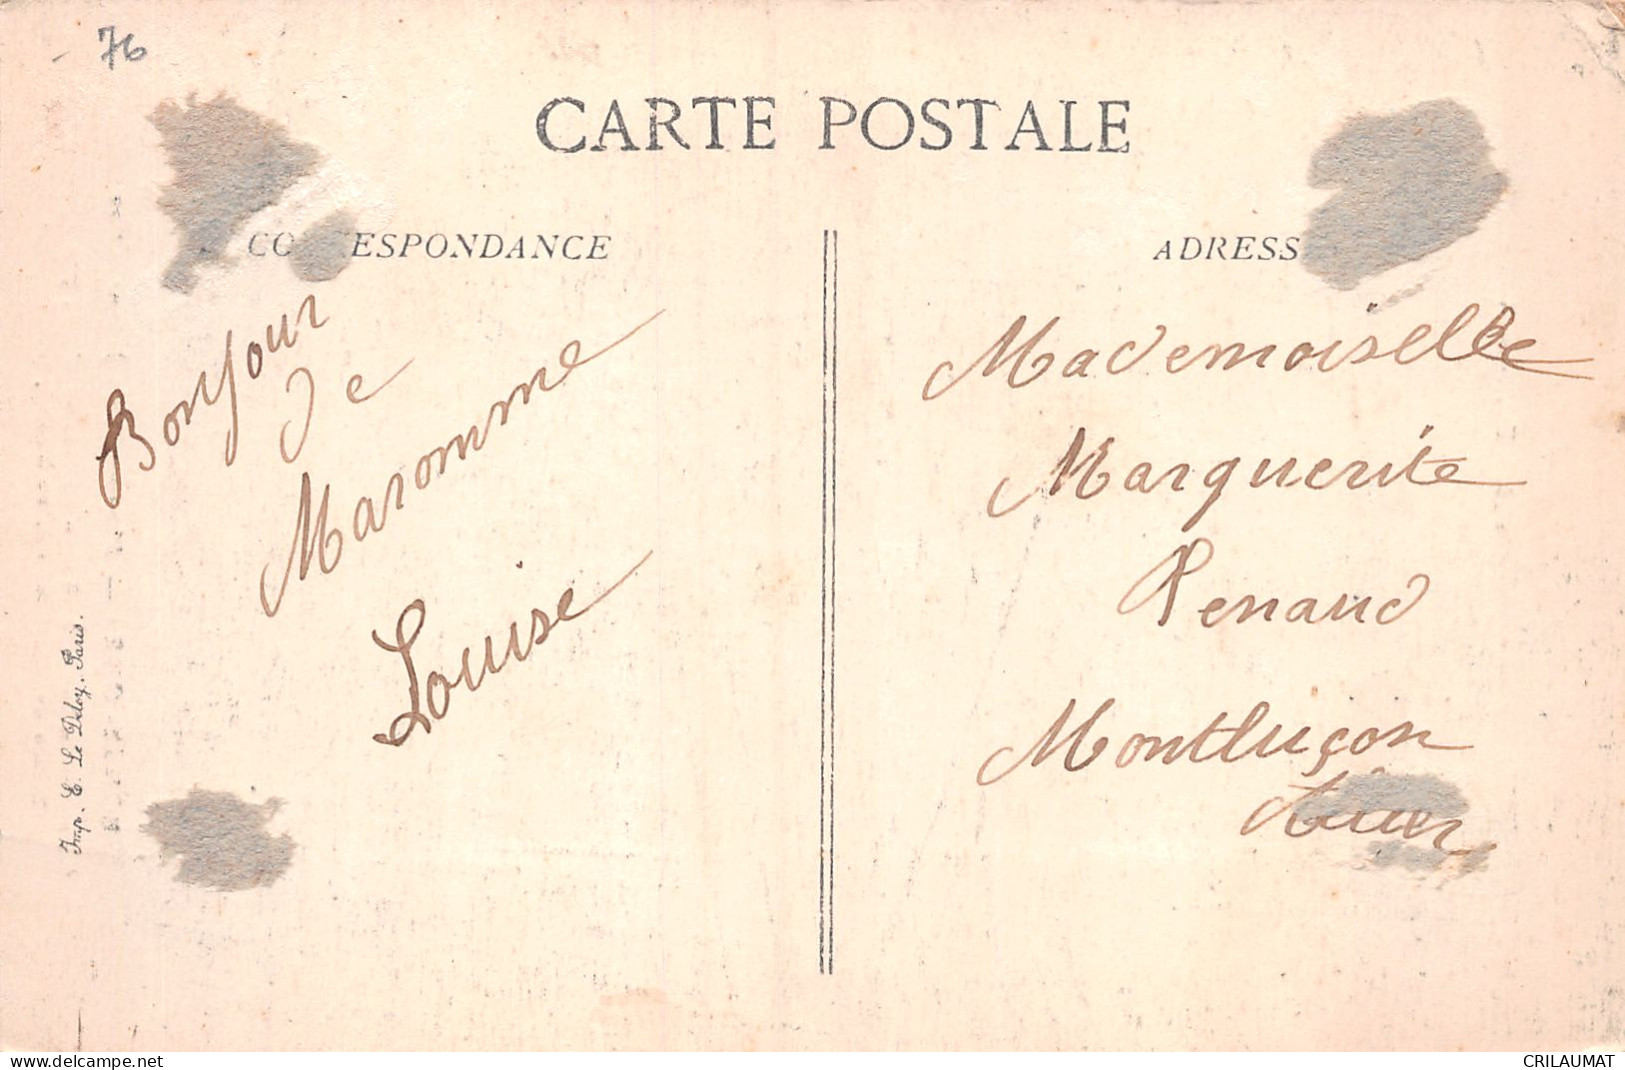 76
CARTE POSTALE
CORRESPONDANCE
Bonjour
de
Maromme
Louise
Imp. E. Le Deley, Paris.
ADRESS
Mademoiselle
Marguerite
Renaud
Montluçon
www.delcampe.net
CRILAUMAT